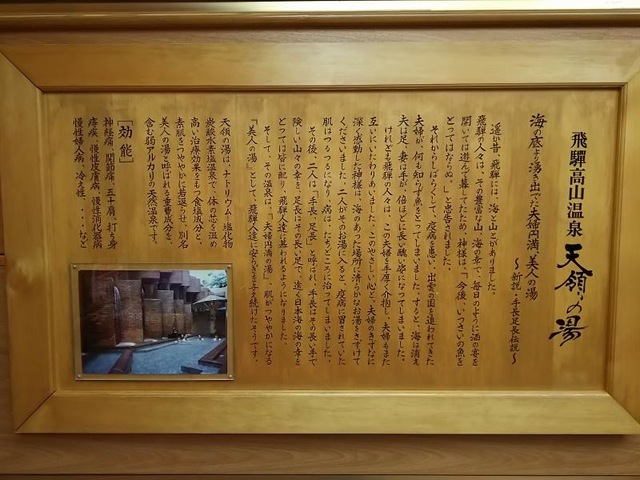 飛騨高山温泉 天領の湯
海の底より湧き出でた夫婦円満、美人の湯
〜新説・手長足長伝説〜
遥か昔、飛騨には、海と山とがありました。
飛騨の人々は、その豊富な山、海の幸で、毎日のように酒の宴を
開いては遊んで暮してたため、神様は「今後、いっさいの魚を
とってはならぬ。」と忠告されました。
それからしばらくして、疫病を患い、出雲の国を追われてきた
夫婦が、何も知らず魚をとってしまいました。すると、海は消え
夫は足、妻は手が、倍ほどに長い醜い姿になってしまいました。
けれども飛騨の人々は、この夫婦を手厚く介抱し、夫婦もまた
互いにいたわりあいました。このやさしい心と、夫婦のきずなに
深く感動した神様は、海のあった場所に清らかなお湯をさずけて
くださいました。二人がそのお湯に入ると、疫病に冒されていた
肌はつるつるになり、病は、たちどころに治ってしまいました。
その後、二人は「手長、足長」と呼ばれ、手長はその長い手で
険しい山々の幸を、足長はその長い足で、遠く日本海の海の幸を
とっては皆に配り、飛騨人達に慕われるようになりました。
そして、その温泉は、「夫婦円満の湯」、肌がつややかになる
「美人の湯」として、飛騨人達に安らぎを与え続けたそうです。
天領の湯は、ナトリウム―塩化物
炭酸水素塩温泉で、体の芯を温め
高い治療効果をもつ食塩成分と、
素肌をつややかに若返らせ、別名
美人の湯と呼ばれる重曹成分を、
含む弱アルカリの天然温泉です。
［効能］
神経痛、関節痛、五十肩、打ち身
痔疾、慢性皮膚病、慢性消化器病
慢性婦人病、冷え性、・・・など